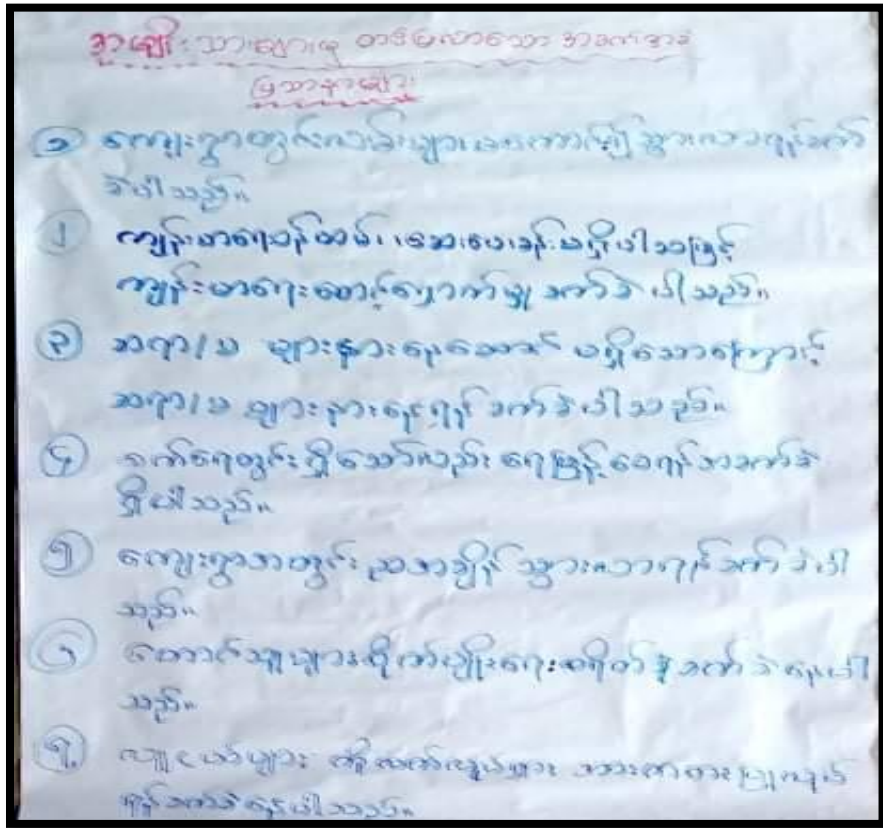 အမျိုးသားများမှ တင်ပြလာသော အခက်အခဲ
ပြဿနာများ
၁ ကျေးရွာတွင်းလမ်းများမကောင်း၍သွားလာရန်ခက်
ခဲပါသည်။
၂ ကျန်းမာရေးဝန်ထမ်း၊ ဆေးပေးခန်းမရှိပါသဖြင့်
ကျန်းမာရေးစောင့်ရှောက်မှု ခက်ခဲပါသည်။
၃ ဆရာ/မ များနားနေဆောင် မရှိသောကြောင့်
ဆရာ/မ များနားနေရန် ခက်ခဲပါသည်။
၄ စက်ရေတွင်းရှိသော်လည်း ရေဖြန့်ဝေရန်အခက်ခဲ
ရှိပါသည်။
၅ ကျေးရွာအတွင်းညအချိန် သွားလာရန်ခက်ခဲပါ
သည်။
၆ တောင်သူများစိုက်ပျိုးရေးစရိတ် ခက်ခဲနေပါ
သည်။
၇ လူငယ်များ အားကစားပြုလုပ်
ရန်ခက်ခဲနေပါသည်။